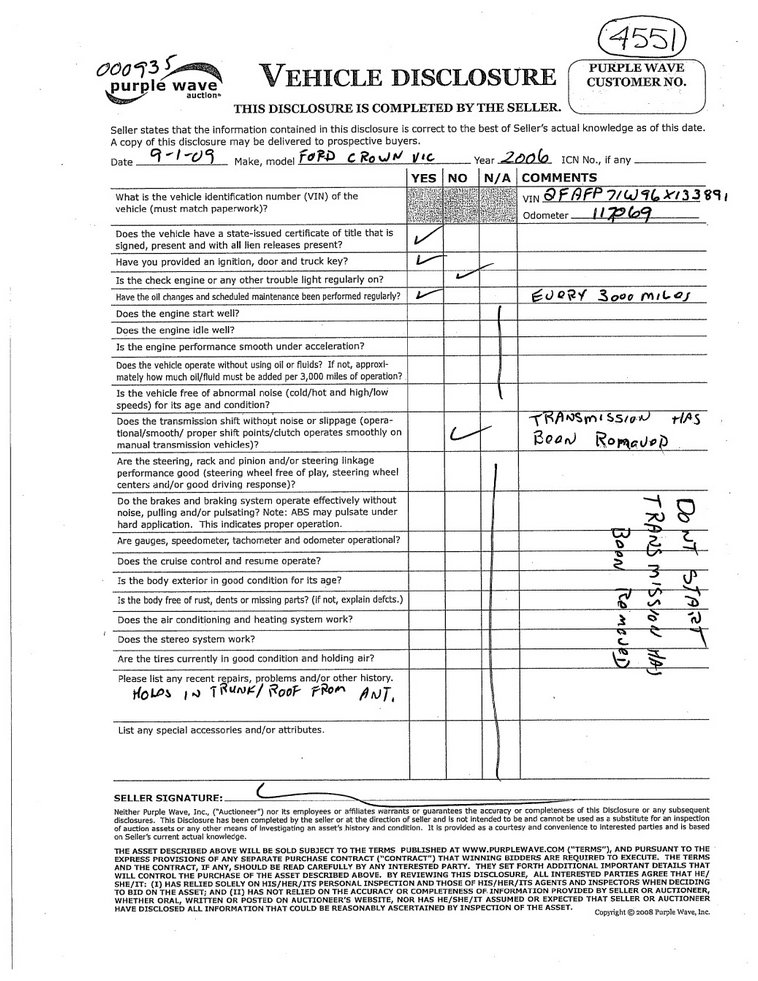 4551
000935
purple wave
auction
VEHICLE DISCLOSURE
PURPLE WAVE
CUSTOMER NO.
THIS DISCLOSURE IS COMPLETED BY THE SELLER.
Seller states that the information contained in this disclosure is correct to the best of Seller's actual knowledge as of this date.
A copy of this disclosure may be delivered to prospective buyers.
Date 9-1-09 Make, model FORD CROWN VIC Year 2006 ICN No., if any
YES NO N/A COMMENTS
What is the vehicle identification number (VIN) of the
vehicle (must match paperwork)?
VIN 2FAFP71W96X133891
Odometer 117069
Does the vehicle have a state-issued certificate of title that is
signed, present and with all lien releases present?
Have you provided an ignition, door and truck key?
Is the check engine or any other trouble light regularly on?
Have the oil changes and scheduled maintenance been performed regularly? EVERY 3000 MILES
Does the engine start well?
Does the engine idle well?
Is the engine performance smooth under acceleration?
Does the vehicle operate without using oil or fluids? If not, approxi-
mately how much oil/fluid must be added per 3,000 miles of operation?
Is the vehicle free of abnormal noise (cold/hot and high/low
speeds) for its age and condition?
Does the transmission shift without noise or slippage (opera-
tional/smooth/ proper shift points/clutch operates smoothly on
manual transmission vehicles)?
TRANSMISSION HAS
BEEN REMOVED
Are the steering, rack and pinion and/or steering linkage
performance good (steering wheel free of play, steering wheel
centers and/or good driving response)?
Do the brakes and braking system operate effectively without
noise, pulling and/or pulsating? Note: ABS may pulsate under
hard application. This indicates proper operation.
Are gauges, speedometer, tachometer and odometer operational?
Does the cruise control and resume operate?
Is the body exterior in good condition for its age?
Is the body free of rust, dents or missing parts? (if not, explain defcts.)
Does the air conditioning and heating system work?
Does the stereo system work?
Are the tires currently in good condition and holding air?
DONT START
TRANSMISSION HAS
BEEN REMOVED
Please list any recent repairs, problems and/or other history.
HOLES IN TRUNK/ROOF FROM ANT.
List any special accessories and/or attributes.
SELLER SIGNATURE:
Neither Purple Wave, Inc., ("Auctioneer") nor its employees or affiliates warrants or guarantees the accuracy or completeness of this Disclosure or any subsequent
disclosures. This Disclosure has been completed by the seller or at the direction of seller and is not intended to be and cannot be used as a substitute for an inspection
of auction assets or any other means of investigating an asset's history and condition. It is provided as a courtesy and convenience to interested parties and is based
on Seller's current actual knowledge.
THE ASSET DESCRIBED ABOVE WILL BE SOLD SUBJECT TO THE TERMS PUBLISHED AT WWW.PURPLEWAVE.COM ("TERMS"), AND PURSUANT TO THE
EXPRESS PROVISIONS OF ANY SEPARATE PURCHASE CONTRACT ("CONTRACT") THAT WINNING BIDDERS ARE REQUIRED TO EXECUTE. THE TERMS
AND THE CONTRACT, IF ANY, SHOULD BE READ CAREFULLY BY ANY INTERESTED PARTY. THEY SET FORTH ADDITIONAL IMPORTANT DETAILS THAT
WILL CONTROL THE PURCHASE OF THE ASSET DESCRIBED ABOVE. BY REVIEWING THIS DISCLOSURE, ALL INTERESTED PARTIES AGREE THAT HE/
SHE/IT: (I) HAS RELIED SOLELY ON HIS/HER/ITS PERSONAL INSPECTION AND THOSE OF HIS/HER/ITS AGENTS AND INSPECTORS WHEN DECIDING
TO BID ON THE ASSET; AND (II) HAS NOT RELIED ON THE ACCURACY OR COMPLETENESS OF INFORMATION PROVIDED BY SELLER OR AUCTIONEER,
WHETHER ORAL, WRITTEN OR POSTED ON AUCTIONEER'S WEBSITE, NOR HAS HE/SHE/IT ASSUMED OR EXPECTED THAT SELLER OR AUCTIONEER
HAVE DISCLOSED ALL INFORMATION THAT COULD BE REASONABLY ASCERTAINED BY INSPECTION OF THE ASSET.
Copyright © 2008 Purple Wave, Inc.